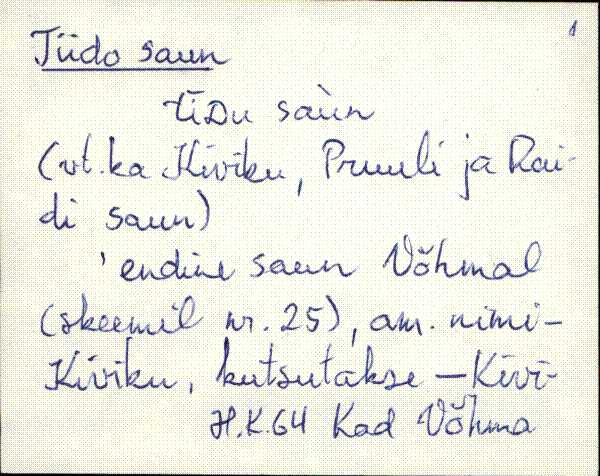 1
Tiido saun
tīᴅu saùn
(vt. ka Kiviku, Pruuli ja Rai-
di saun)
' endine saun Võhmal
(skeemil nr. 25), am. nimi –
Kiviku, kutsutakse – Kivi-
H.K.64 Kad Võhma